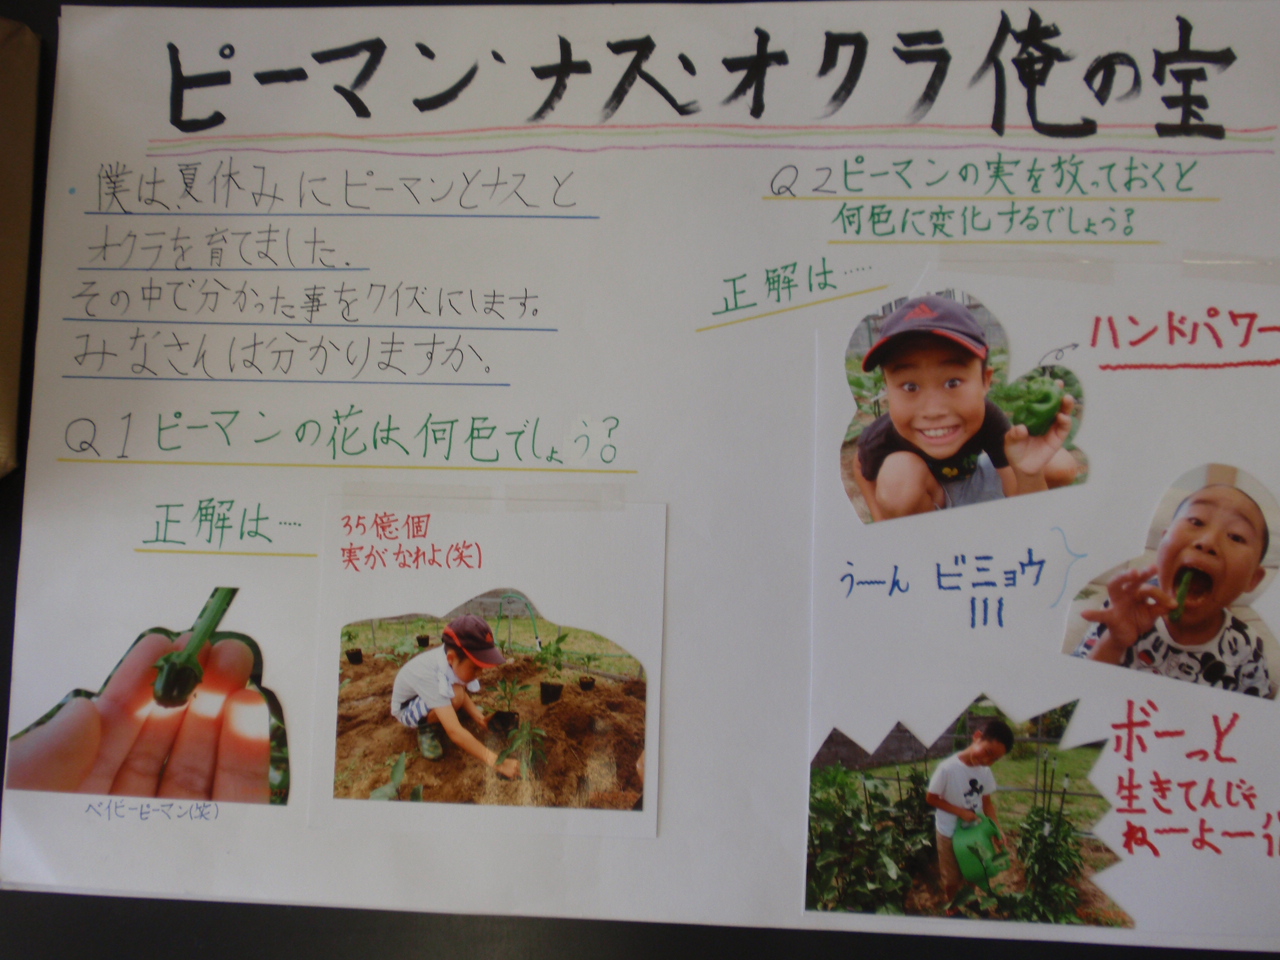 ピーマン・ナス・オクラ俺の宝
・僕は、夏休みにピーマンとナスと
オクラを育てました。
その中で分かった事をクイズにします。
みなさんは分かりますか。
Q1 ピーマンの花は何色でしょう?
正解は……
35億個
実がなれよ(笑)
ベイビーピーマン(笑)
Q2ピーマンの実を放っておくと
何色に変化するでしょう?
正解は……
ハンドパワー
うーん ビミョウ
ボーっと
生きてんじゃ
ねーよー